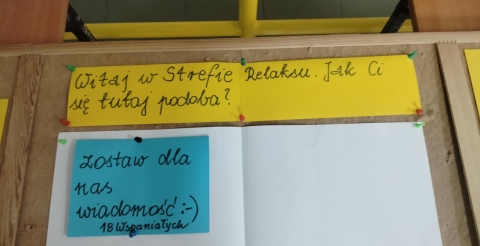 Witaj w Strefie Relaksu. Jak Ci
się tutaj podoba?
Zostaw dla
nas
wiadomość :-)
18 Wspaniałych